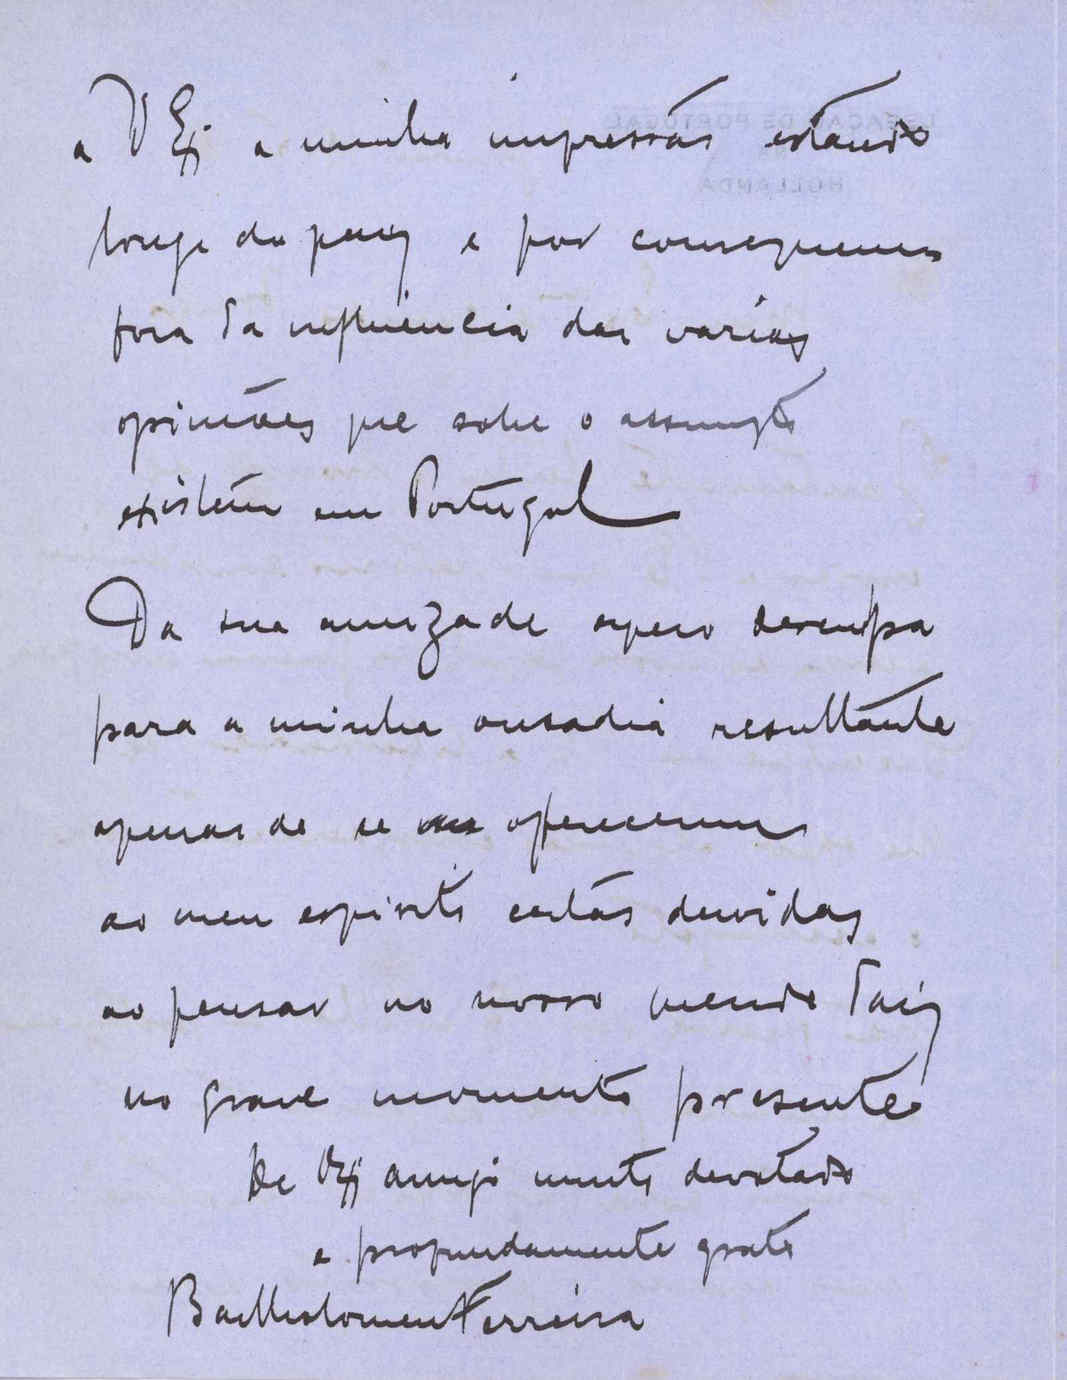 a V Exª a minha impressão estando
longe do paiz e por consequencia
fora da influencia das varias
opiniões que sobre o assumpto
existem em Portugal
Da sua amizade espero desculpa
para a minha ousadia resultante
apenas de se me offerecerem
ao meu espirito certas duvidas
ao pensar no nosso querido Paiz
no grave momento presente
De VExª amigo muito devotado
e profundamente grato
Bartholomeu Ferreira
LEGAÇÃO DE PORTUGAL
HOLLANDA